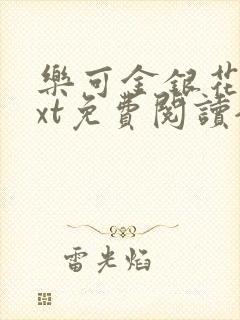 樂可金銀花
xt免費閱讀
雷光焰